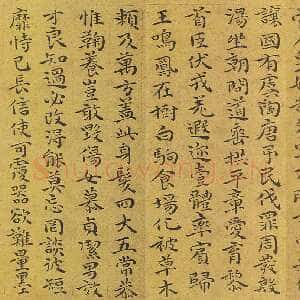 讓國有虞陶唐弔民伐罪周發殷
湯坐朝問道垂拱平章愛育黎
首臣伏戎羌遐迩壹體率賓歸
王鳴鳳在樹白駒食場化被草木
賴及萬方蓋此身髮四大五常恭
惟鞠養豈敢毀傷女慕貞潔男效
才良知過必改得能莫忘罔談彼短
靡恃己長信使可覆器欲難量墨